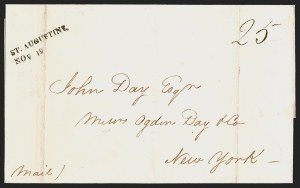 25
ST. AUGUSTINE,
NOV 19
John Day Esqr
Messrs Ogden Day & Co
New York
Mail)